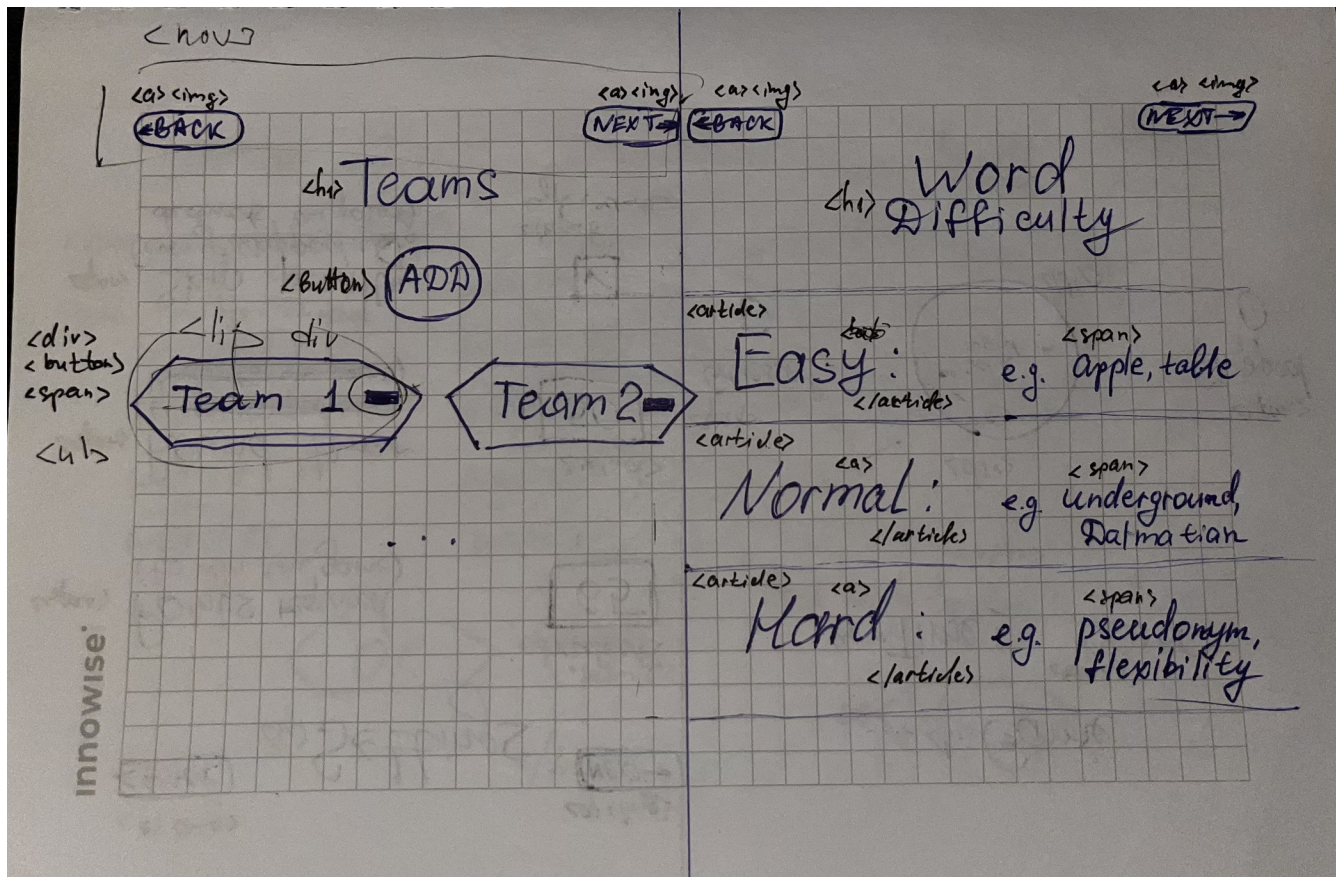 <nav>
<a><img>
←BACK
<a><img>
NEXT→
<h1> Teams
<button> ADD
<div>
<button>
<span>
<ul>
<li> div
Team 1
Team 2
. . .
innowise
<a><img>
←BACK
<a> <img>
NEXT→
<h1> Word
Difficulty
<article>
Easy:
<span>
e.g. apple, table
</article>
<article>
<a>
Normal:
<span>
e.g. underground,
Dalmatian
</article>
<article>
<a>
Hard :
<span>
e.g. pseudonym,
flexibility
</article>